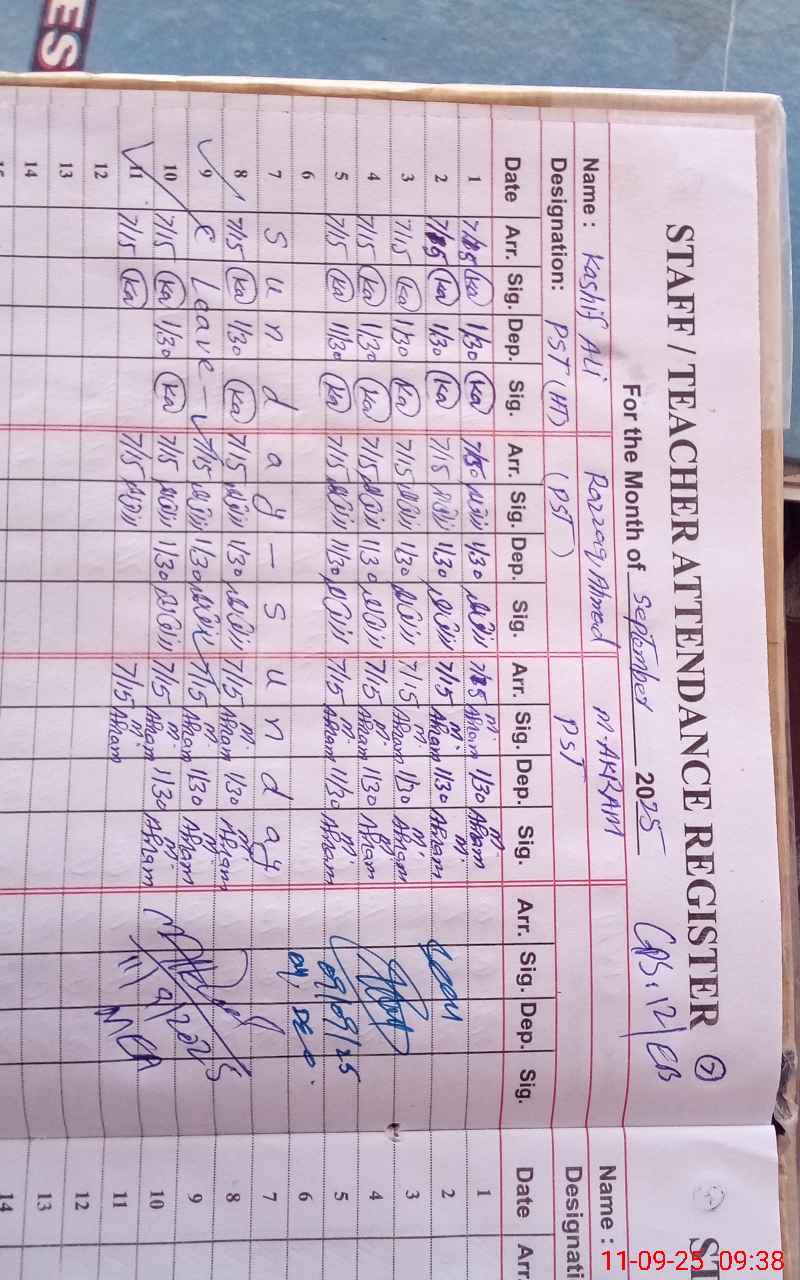 ES
STAFF / TEACHER ATTENDANCE REGISTER 7
For the Month of September 2025 GPS. 12/EB
Name : Kashif Ali Razzaq Ahmed M. AKRAM
Designation: PST (HT) (PST) PST
Date Arr. Sig. Dep. Sig. Arr. Sig. Dep. Sig. Arr. Sig. Dep. Sig. Arr. Sig. Dep. Sig.
1 7/15 Ka 1/30 Ka 7/15 1/30 7/15 M. Akram 1/30 M. Akram
2 7/15 Ka 1/30 Ka 7/15 1/30 7/15 M. Akram 1/30 M. Akram
3 7/15 Ka 1/30 Ka 7/15 1/30 7/15 M. Akram 1/30 M. Akram
4 7/15 Ka 1/30 Ka 7/15 1/30 7/15 M. Akram 1/30 M. Akram
5 7/15 Ka 11/30 Ka 7/15 11/30 7/15 M. Akram 11/30 M. Akram 09/09/25
6
7 S u n d a y – S u n d a y
8 7/15 Ka 1/30 Ka 7/15 1/30 7/15 M. Akram 1/30 M. Akram
9 C Leave - 7/15 1/30 7/15 M. Akram 1/30 M. Akram
10 7/15 Ka 1/30 Ka 7/15 1/30 7/15 M. Akram 1/30 M. Akram 11/9/2025
11 7/15 Ka 7/15 7/15 M. Akram MEA
12
13
14
15
ST
Name :
Designati
Date Arr.
1
2
3
4
5
6
7
8
9
10
11
12
13
14
11-09-25 09:38